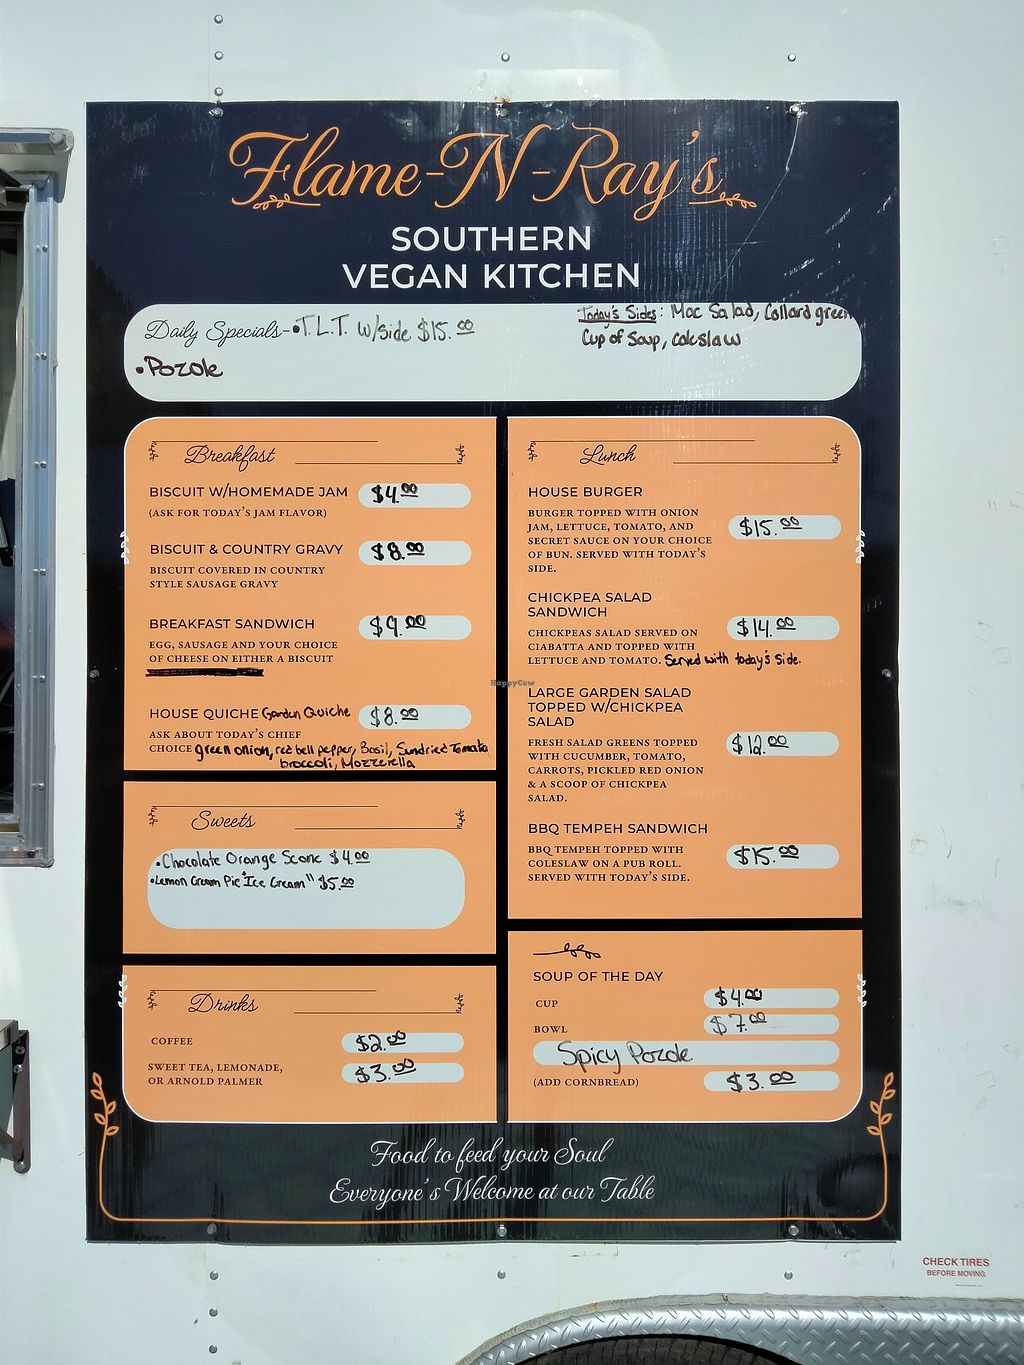 Flame-N-Ray's
SOUTHERN
VEGAN KITCHEN
Daily Specials- •T.L.T. w/side $15.00
•Pozole
Today's Sides: Mac Salad, Collard green
Cup of Soup, coleslaw
Breakfast
BISCUIT W/HOMEMADE JAM $4.00
(ASK FOR TODAY'S JAM FLAVOR)
BISCUIT & COUNTRY GRAVY $8.00
BISCUIT COVERED IN COUNTRY
STYLE SAUSAGE GRAVY
BREAKFAST SANDWICH $9.00
EGG, SAUSAGE AND YOUR CHOICE
OF CHEESE ON EITHER A BISCUIT
HOUSE QUICHE Garden Quiche $8.00
ASK ABOUT TODAY'S CHIEF
CHOICE green onion, red bell pepper, Basil, Sundried Tomato
broccoli, Mozzerella
Sweets
•Chocolate Orange Scone $4.00
•Lemon Cream Pie "Ice Cream" $5.00
Drinks
COFFEE $2.00
SWEET TEA, LEMONADE, $3.00
OR ARNOLD PALMER
Lunch
HOUSE BURGER
BURGER TOPPED WITH ONION
JAM, LETTUCE, TOMATO, AND $15.00
SECRET SAUCE ON YOUR CHOICE
OF BUN. SERVED WITH TODAY'S
SIDE.
CHICKPEA SALAD
SANDWICH
CHICKPEAS SALAD SERVED ON $14.00
CIABATTA AND TOPPED WITH
LETTUCE AND TOMATO. Served with today's side.
LARGE GARDEN SALAD
TOPPED W/CHICKPEA
SALAD
FRESH SALAD GREENS TOPPED $12.00
WITH CUCUMBER, TOMATO,
CARROTS, PICKLED RED ONION
& A SCOOP OF CHICKPEA
SALAD.
BBQ TEMPEH SANDWICH
BBQ TEMPEH TOPPED WITH $15.00
COLESLAW ON A PUB ROLL.
SERVED WITH TODAY'S SIDE.
SOUP OF THE DAY
CUP $4.00
BOWL $7.00
Spicy Pozole
(ADD CORNBREAD) $3.00
Food to feed your Soul
Everyone's Welcome at our Table
HappyCow
CHECK TIRES
BEFORE MOVING